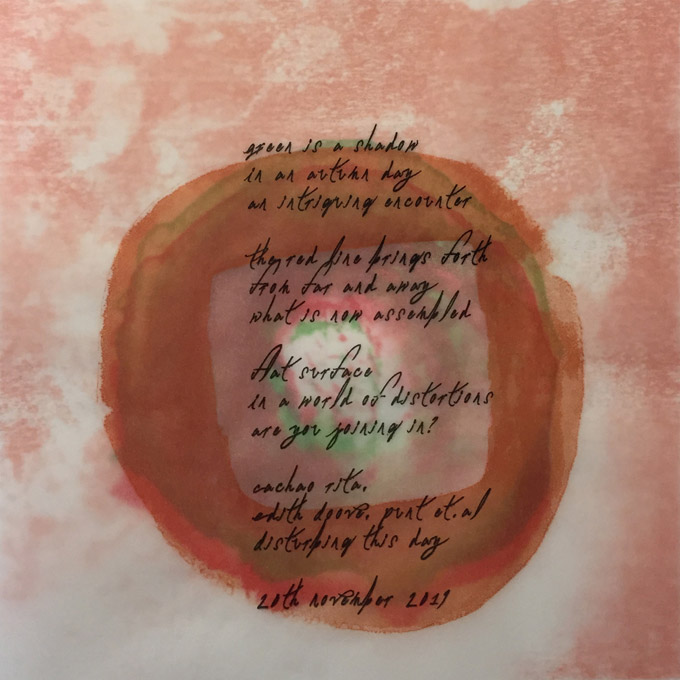 green is a shadow
in an autumn day
an intriguing encounter
the red line brings forth
from far and away
what is now assembled
flat surface
in a world of distortions
are you joining in?
cachao rita,
edith doove, punt et.al
disturbing this day
20th november 2019